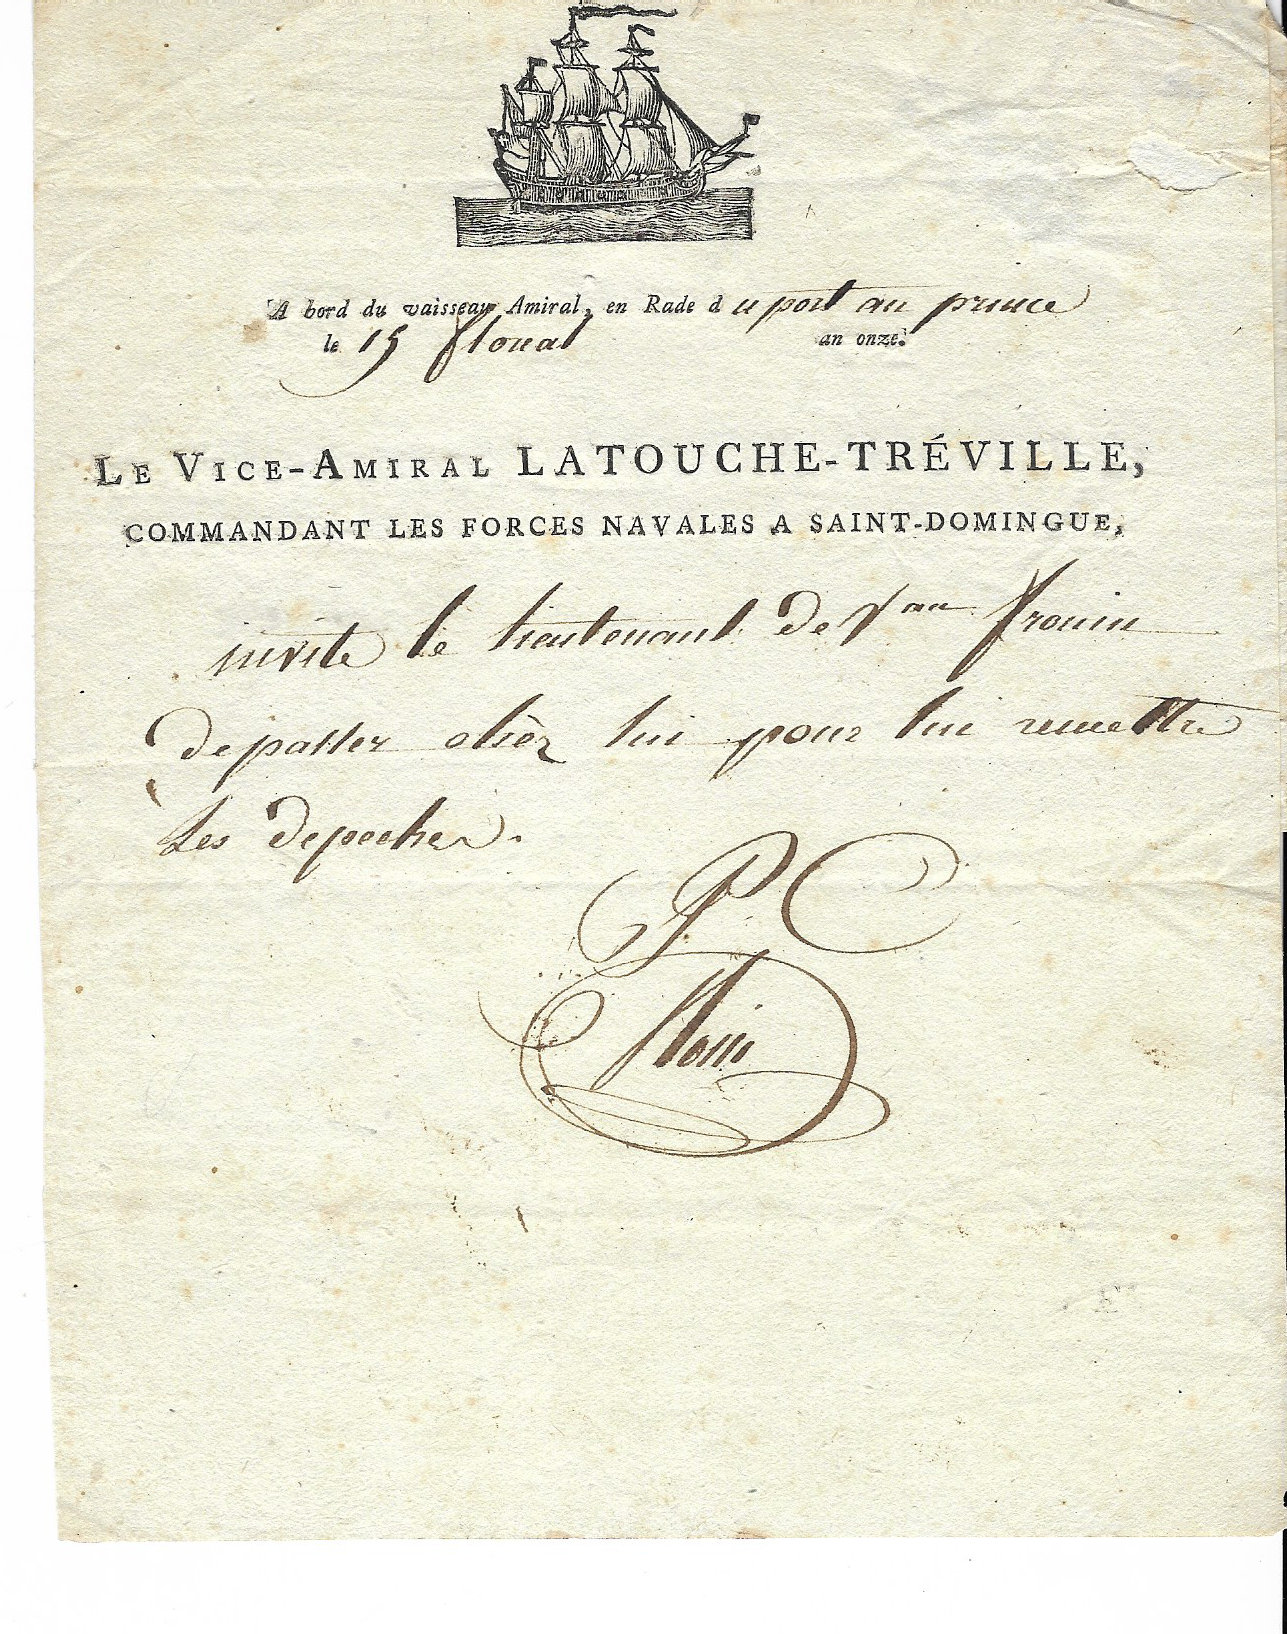 A bord du vaisseau Amiral, en Rade du port au prince
le 15 floual an onze.
LE VICE-AMIRAL LATOUCHE-TRÉVILLE,
COMMANDANT LES FORCES NAVALES A SAINT-DOMINGUE,
invite le lieutenant de Vau frouin
de passer chèz lui pour lui remettre
Les depeches.